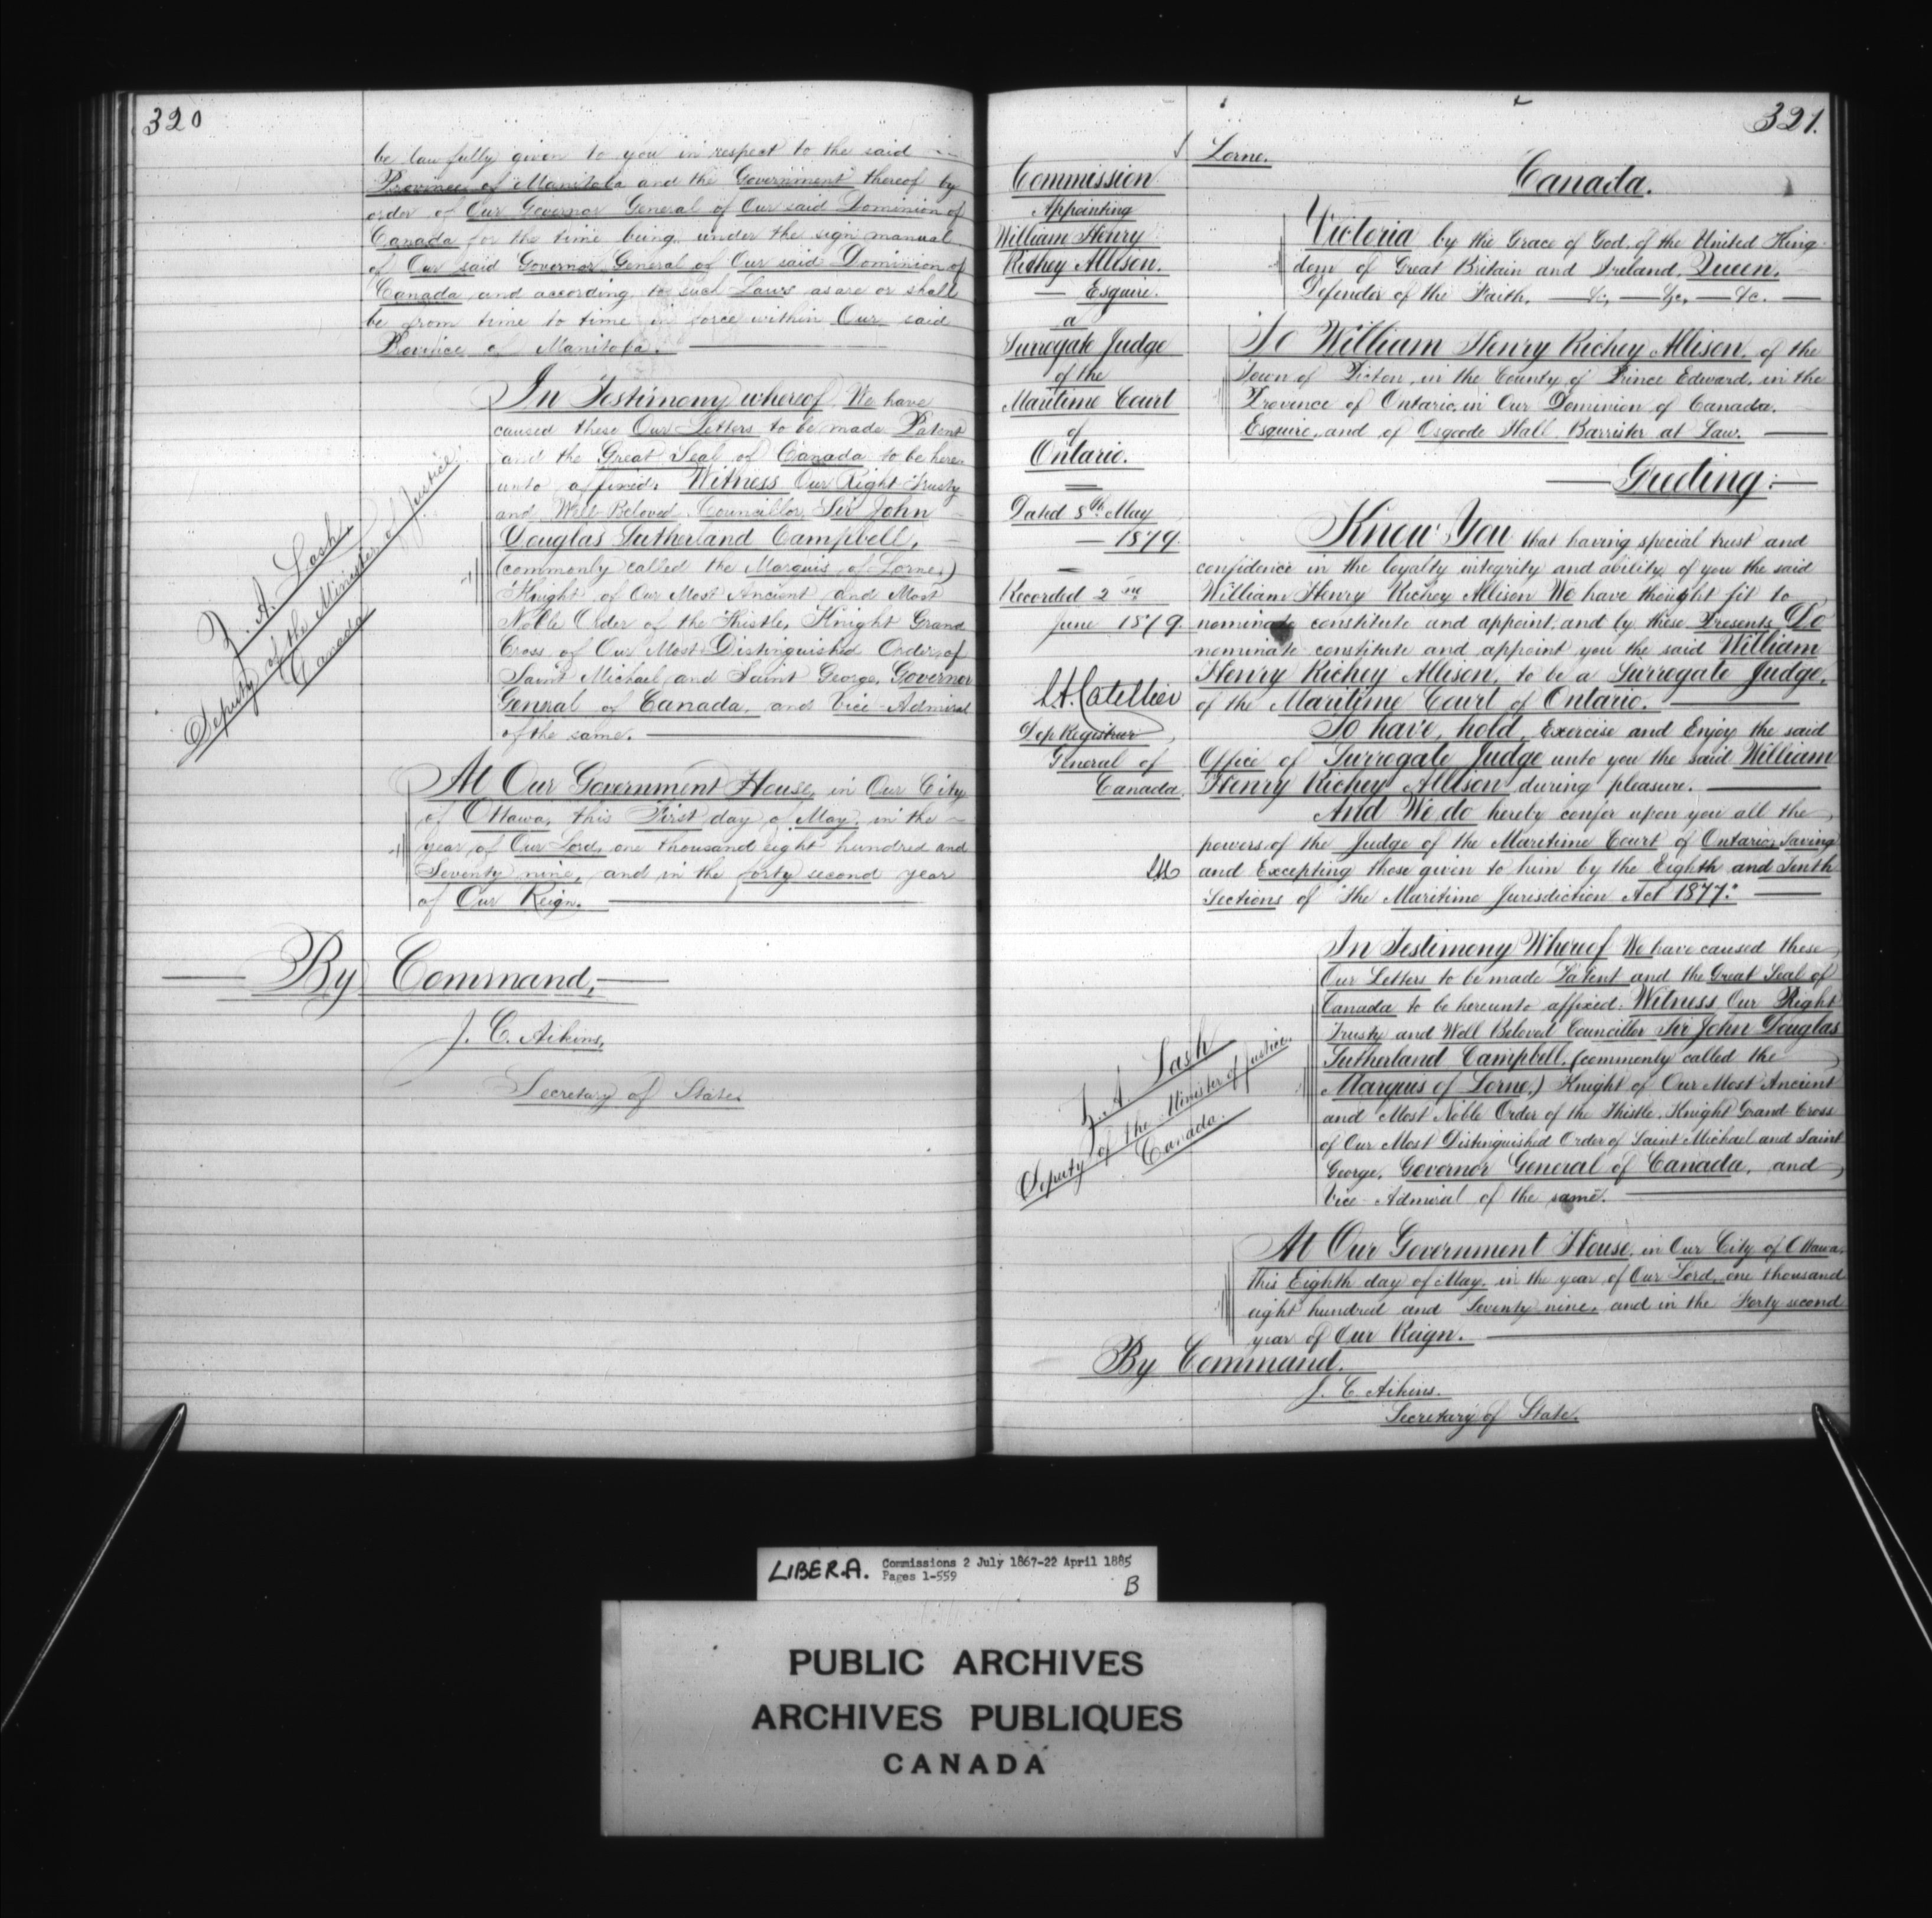 320
be lawfully given to you in respect to the said
Province of Manitoba and the Government thereof by
order of Our Governor General of Our said Dominion of
Canada for the time being under the sign manual
of Our said Governor General of Our said Dominion of
Canada and according to such Laws as are or shall
be from time to time in force within Our said
Province of Manitoba.
In Testimony whereof We have
caused these Our Letters to be made Patent
and the Great Seal of Canada to be here-
unto affixed. Witness Our Right Trusty
and Well-Beloved Councillor Sir John
Douglas Sutherland Campbell,
(commonly called the Marquis of Lorne,)
Knight of Our Most Ancient and Most
Noble Order of the Thistle, Knight Grand
Cross of Our Most Distinguished Order of
Saint Michael and Saint George, Governor
General of Canada, and Vice-Admiral
of the same.
Z. A. Lash
Deputy of the Minister of Justice
Canada
At Our Government House, in Our City
of Ottawa, this First day of May, in the
year of Our Lord, one thousand eight hundred and
Seventy nine, and in the forty second year
of Our Reign.
By Command,
J. C. Aikins,
Secretary of State.
321.
Lorne.
Canada.
Commission
Appointing
William Henry
Richey Allison.
Esquire.
a
Surrogate Judge
of the
Maritime Court
of
Ontario.
Dated 8th May
1879.
Recorded 2nd
June 1879.
Dep Registrar
General of
Canada.
Victoria by the Grace of God, of the United King-
dom of Great Britain and Ireland, Queen,
Defender of the Faith, &c, &c, &c.
To William Henry Richey Allison, of the
Town of Picton, in the County of Prince Edward, in the
Province of Ontario, in Our Dominion of Canada,
Esquire, and of Osgoode Hall, Barrister at Law.
Greeting:
Know You that having special trust and
confidence in the loyalty integrity and ability of you the said
William Henry Richey Allison We have thought fit to
nominate constitute and appoint, and by these Presents Do
nominate constitute and appoint you the said William
Henry Richey Allison, to be a Surrogate Judge,
of the Maritime Court of Ontario.
To have, hold, Exercise and Enjoy the said
Office of Surrogate Judge unto you the said William
Henry Richey Allison during pleasure.
And We do hereby confer upon you all the
powers of the Judge of the Maritime Court of Ontario, Saving
and Excepting those given to him by the Eighth and Tenth
Sections of "The Maritime Jurisdiction Act 1877."
In Testimony Whereof We have caused these
Our Letters to be made Patent and the Great Seal of
Canada to be hereunto affixed. Witness Our Right
Trusty and Well Beloved Councillor Sir John Douglas
Sutherland Campbell, (commonly called the
Marquis of Lorne,) Knight of Our Most Ancient
and Most Noble Order of the Thistle, Knight Grand Cross
of Our Most Distinguished Order of Saint Michael and Saint
George, Governor General of Canada, and
Vice-Admiral of the same.
Z. A. Lash
Deputy of the Minister of Justice.
Canada.
At Our Government House, in Our City of Ottawa,
This Eighth day of May, in the year of Our Lord, one thousand
eight hundred and Seventy nine, and in the Forty second
year of Our Reign.
By Command.
J. C. Aikins.
Secretary of State.
LIBER.A. Commissions 2 July 1867-22 April 1885
Pages 1-559
B
PUBLIC ARCHIVES
ARCHIVES PUBLIQUES
CANADA